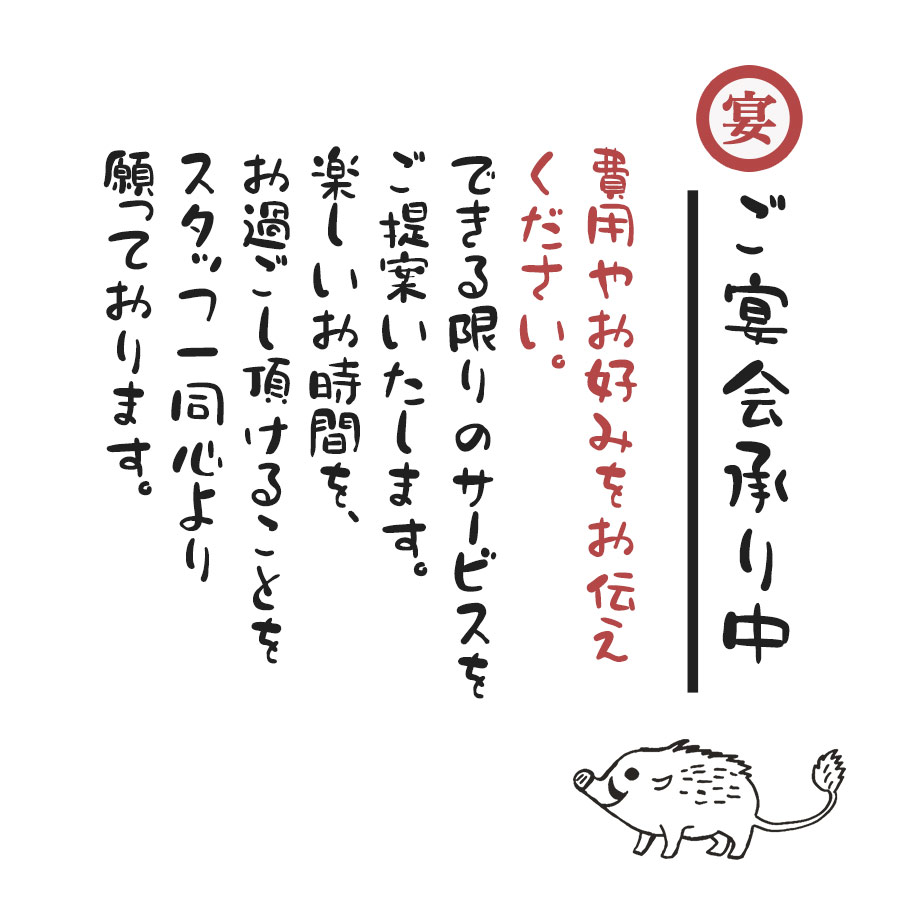 宴
ご宴会承り中
費用やお好みをお伝え
ください。
できる限りのサービスを
ご提案いたします。
楽しいお時間を、
お過ごし頂けることを
スタッフ一同心より
願っております。